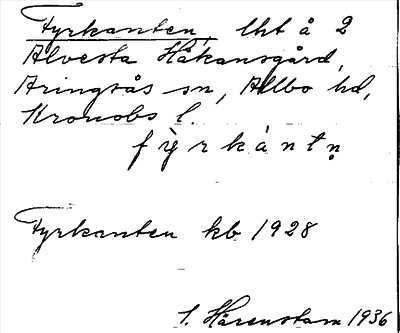 Fyrkanten, lht å 2
Alvesta Håkansgård,
Aringsås sn, Allbo hd,
Kronobs l.
fỳrkántn̥
Fyrkanten kb 1928
S. Härenstam 1936